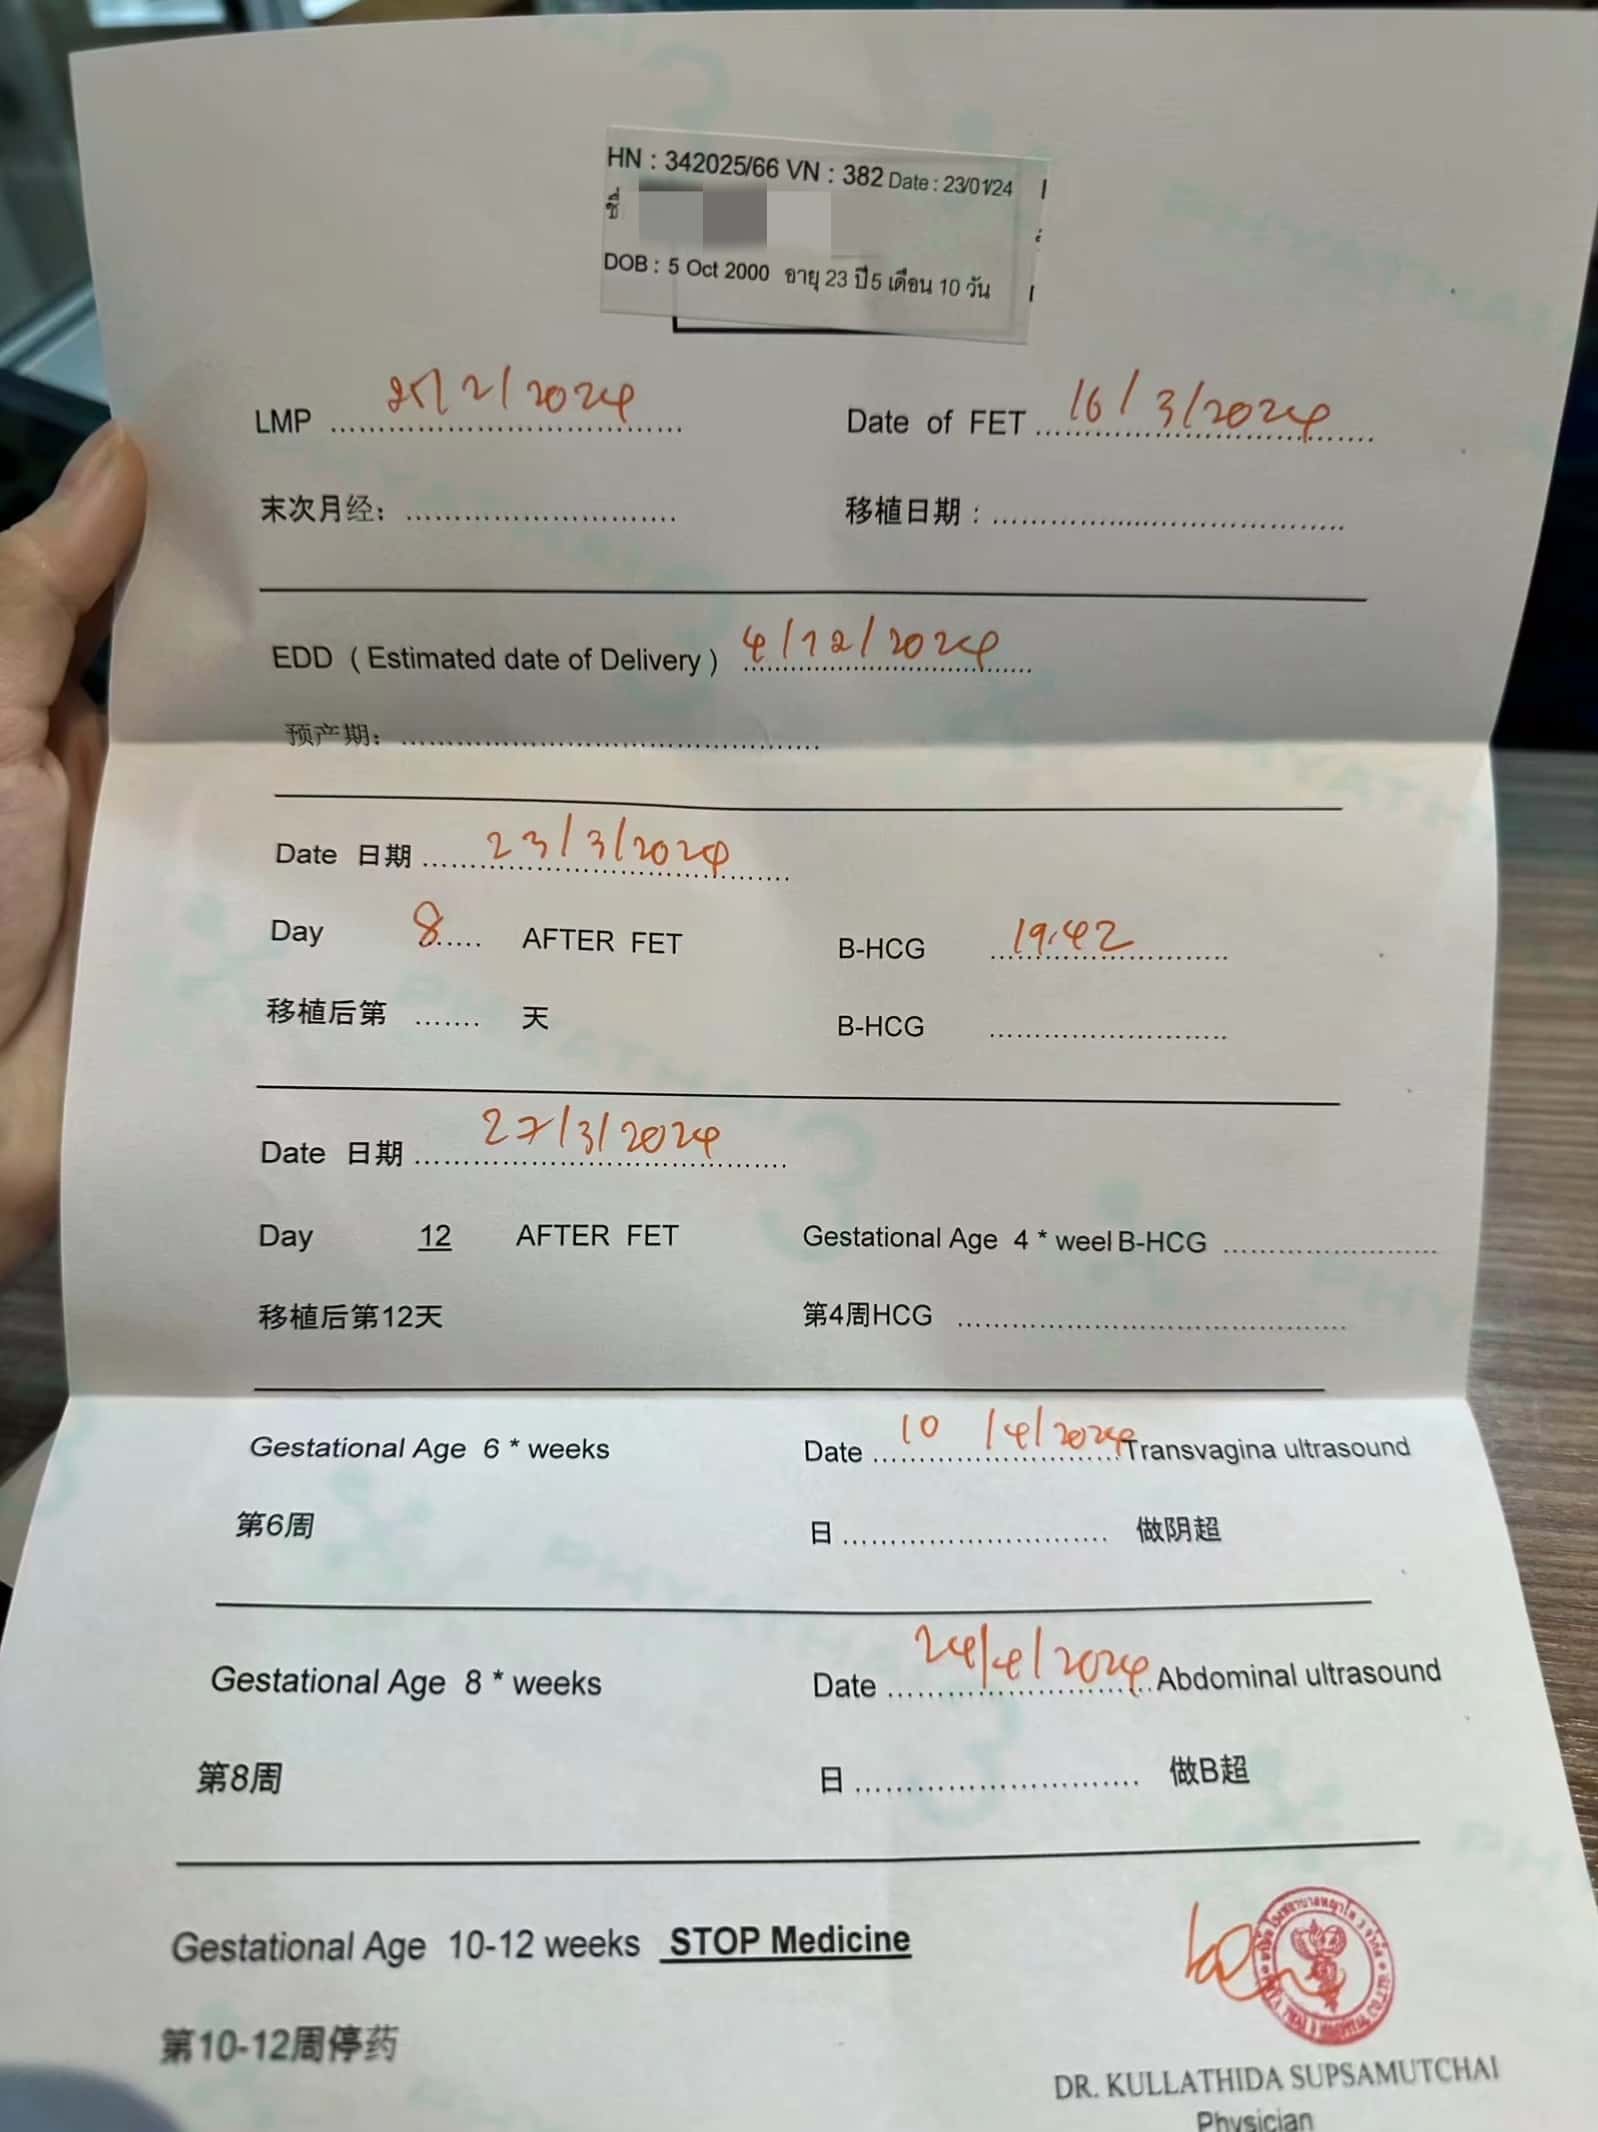 HN : 342025/66 VN : 382 Date : 23/01/24
ชื่
DOB : 5 Oct 2000 อายุ 23 ปี 5 เดือน 10 วัน
LMP 25/2/2024 Date of FET 16/3/2024
末次月经: 移植日期 :
EDD ( Estimated date of Delivery ) 4/12/2024
预产期:
Date 日期 23/3/2024
Day 8 AFTER FET B-HCG 19.42
移植后第 ....... 天 B-HCG
Date 日期 27/3/2024
Day 12 AFTER FET Gestational Age 4 * weel B-HCG
移植后第12天 第4周HCG
Gestational Age 6 * weeks Date 10 /4/2024 Transvagina ultrasound
第6周 日 做阴超
Gestational Age 8 * weeks Date 24/4/2024 Abdominal ultrasound
第8周 日 做B超
Gestational Age 10-12 weeks STOP Medicine
第10-12周停药
DR. KULLATHIDA SUPSAMUTCHAI
Physician